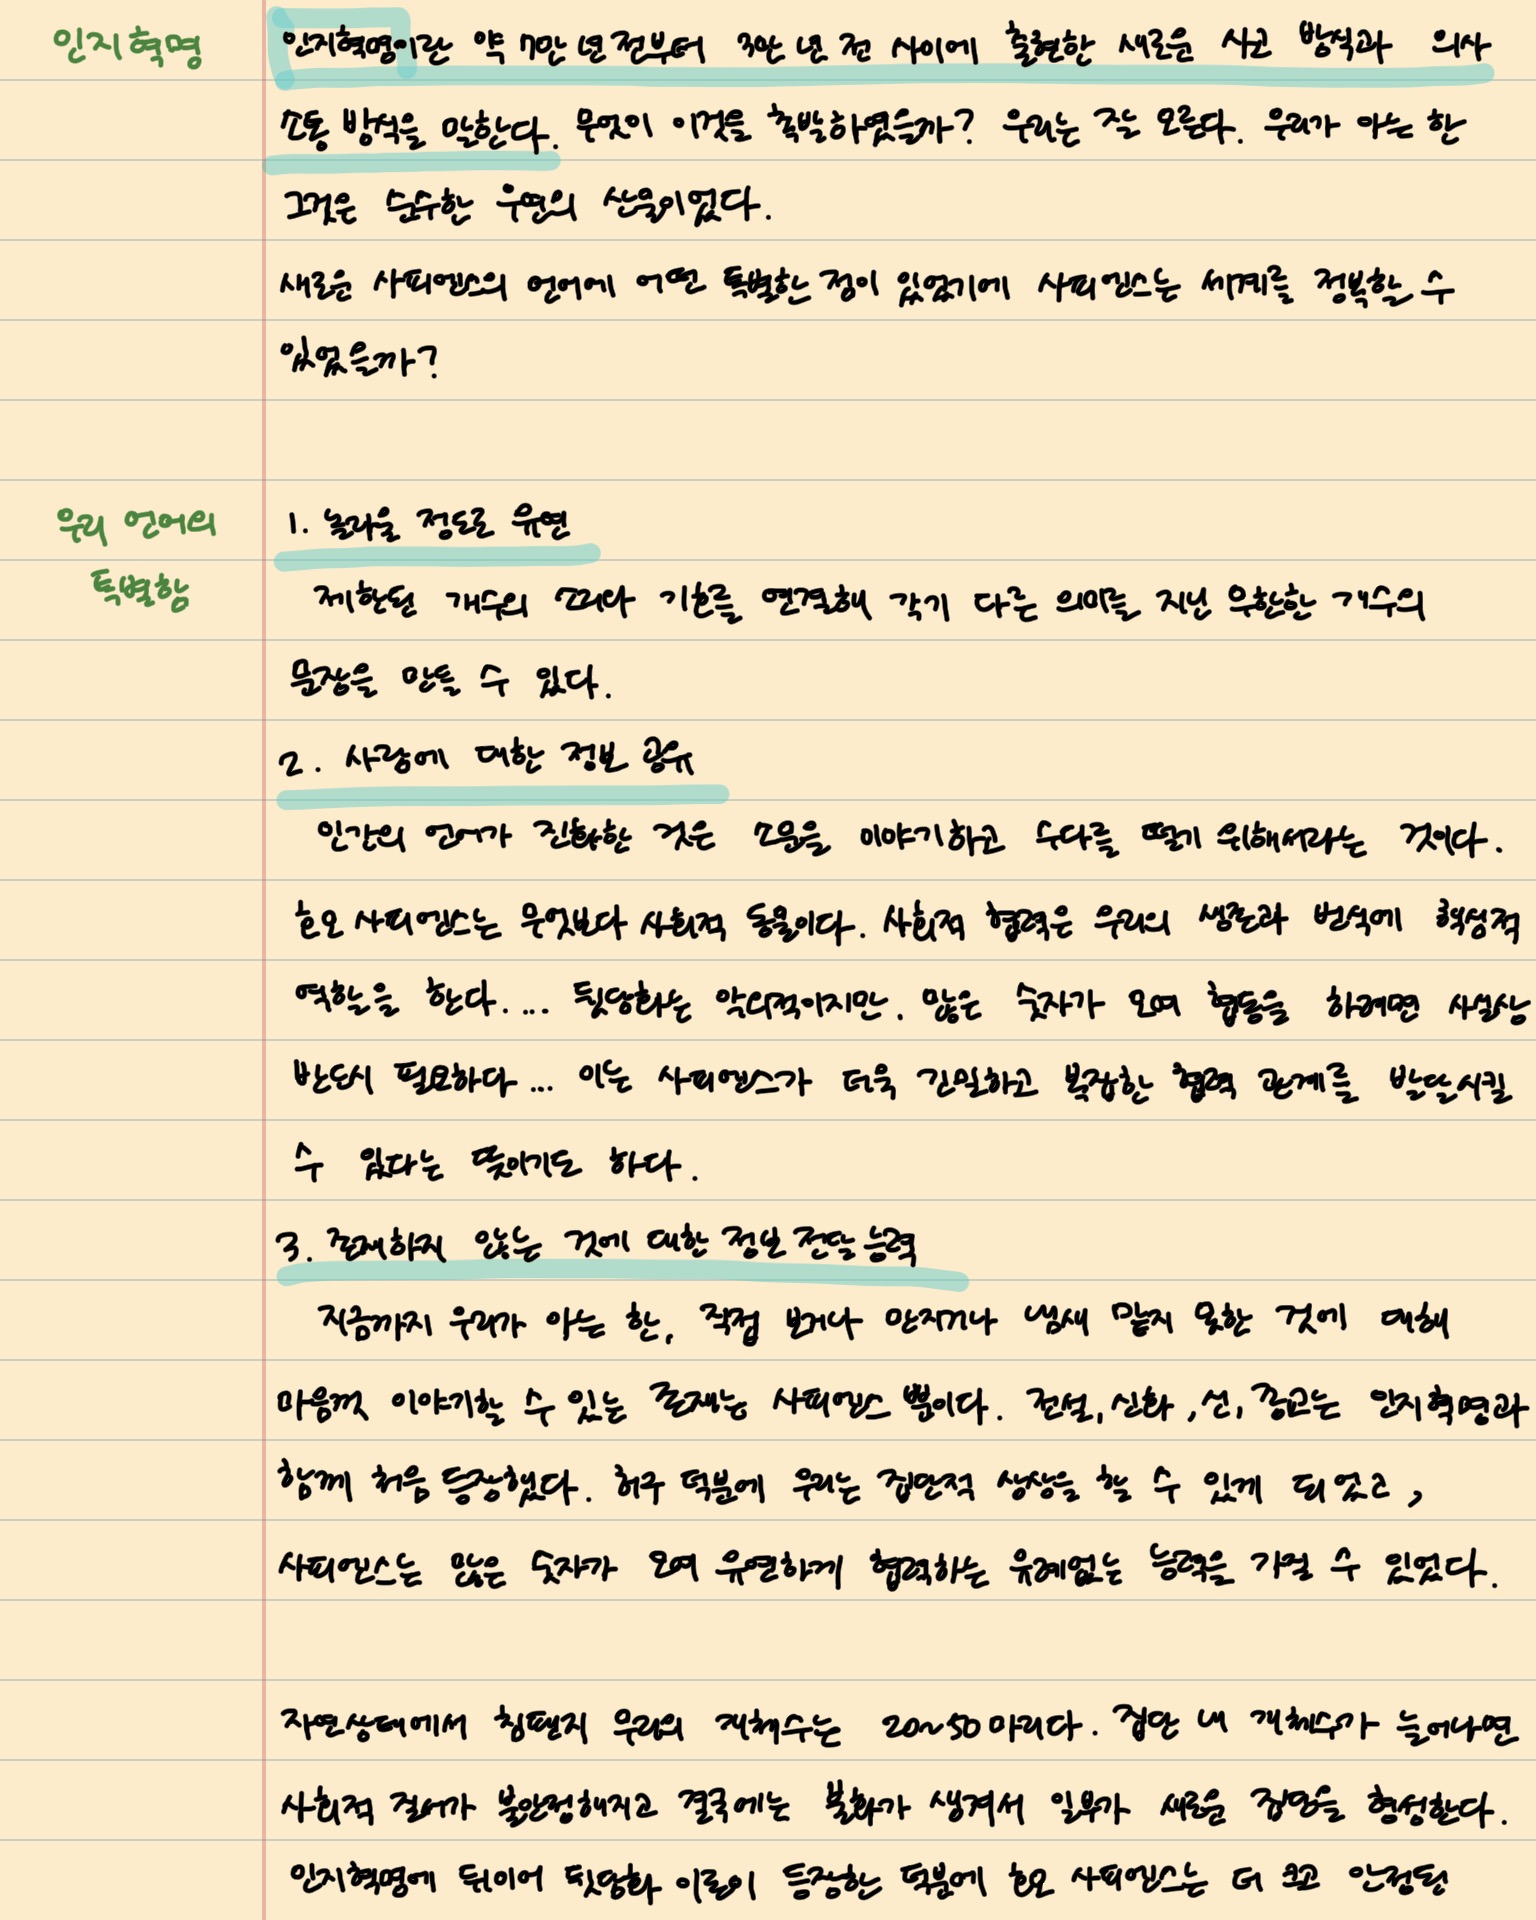 인지혁명
인지혁명이란 약 7만 년 전부터 3만 년 전 사이에 출현한 새로운 사고 방식과 의사
소통 방식을 말한다. 무엇이 이것을 촉발하였을까? 우리는 잘 모른다. 우리가 아는 한
그것은 순수한 우연의 산물이었다.
새로운 사피엔스의 언어에 어떤 특별한 점이 있었기에 사피엔스는 세계를 정복할 수
있었을까?
우리 언어의
특별함
1. 놀라울 정도로 유연
제한된 개수의 소리와 기호를 연결해 각기 다른 의미를 지닌 무한한 개수의
문장을 만들 수 있다.
2. 사람에 대한 정보 공유
인간의 언어가 진화한 것은 소문을 이야기하고 수다를 떨기 위해서라는 것이다.
호모 사피엔스는 무엇보다 사회적 동물이다. 사회적 협력은 우리의 생존과 번식에 핵심적
역할을 한다. ... 뒷담화는 악의적이지만, 많은 숫자가 모여 협동을 하려면 사실상
반드시 필요하다 ... 이는 사피엔스가 더욱 긴밀하고 복잡한 협력 관계를 발달시킬
수 있다는 뜻이기도 하다.
3. 존재하지 않는 것에 대한 정보 전달 능력
지금까지 우리가 아는 한, 직접 보거나 만지거나 냄새 맡지 못한 것에 대해
마음껏 이야기할 수 있는 존재는 사피엔스 뿐이다. 전설, 신화, 신, 종교는 인지혁명과
함께 처음 등장했다. 허구 덕분에 우리는 집단적 상상을 할 수 있게 되었고,
사피엔스는 많은 숫자가 모여 유연하게 협력하는 유례없는 능력을 가질 수 있었다.
자연상태에서 침팬지 무리의 개체수는 20~50마리다. 집단 내 개체수가 늘어나면
사회적 질서가 불안정해지고 결국에는 불화가 생겨서 일부가 새로운 집단을 형성한다.
인지혁명에 뒤이어 뒷담화 이론이 등장한 덕분에 호모 사피엔스는 더 크고 안정된